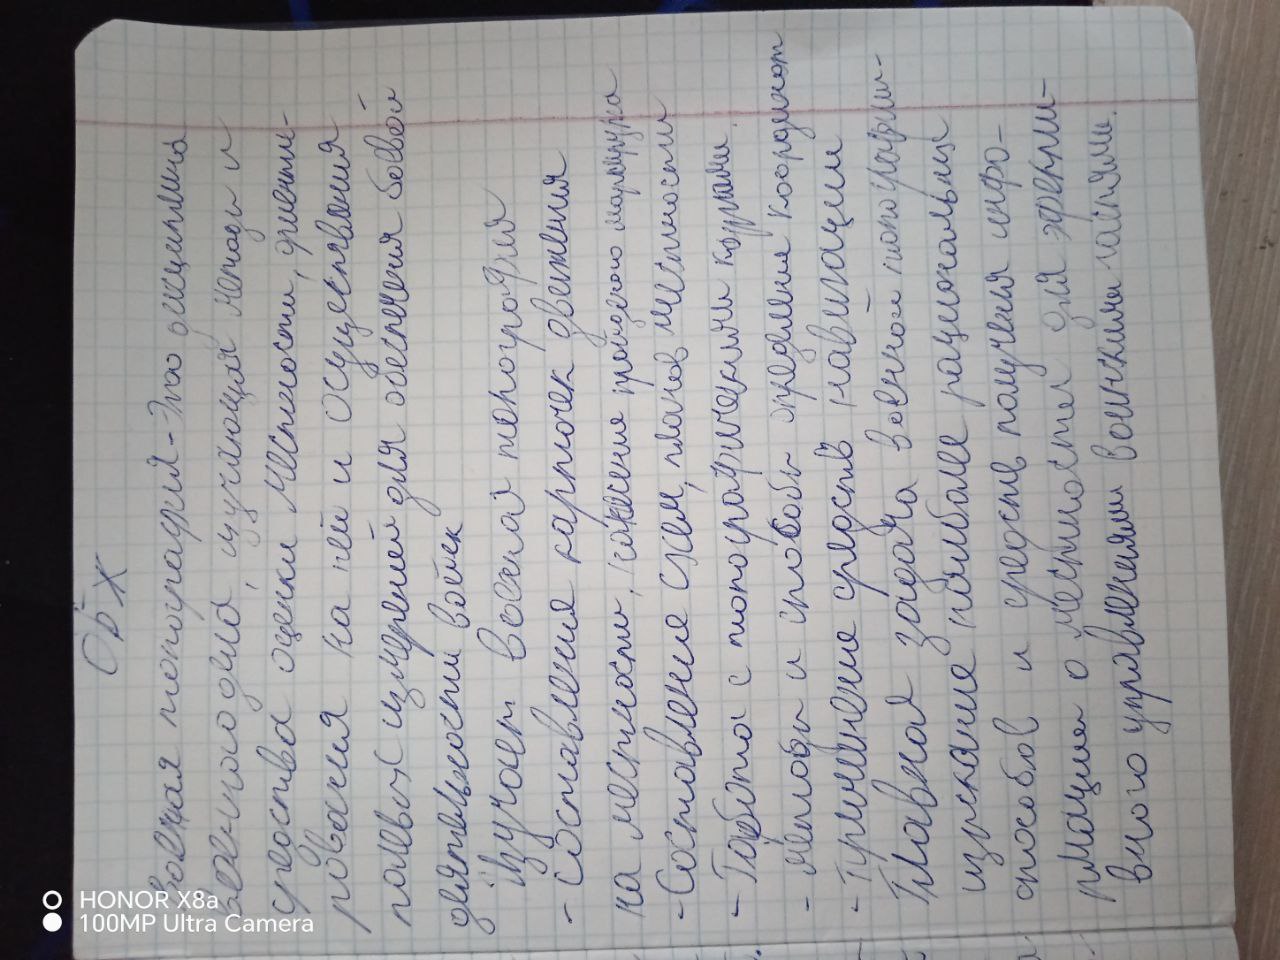 ОБЖ
Военная топография - Это дисциплина
военного дела, изучающая методы и
средства оценки местности, ориенти-
рования на ней и осуществления
полевых измерений для обеспечения боевой
деятельности войск
Изучает военная топография
- Составления карточек движения
на местности, нанесение пройденого маршрута
- Составление схем, планов местности
- Работа с топографическими картами.
- методы и способы определие координат
- Применение средств навигации
Главная задача военной топографи-
изыскание наиболее рациональных
способов и средств получения инфо-
рмации о местности для эффекти-
вного управлениями воинскими частями.
HONOR X8a
100MP Ultra Camera